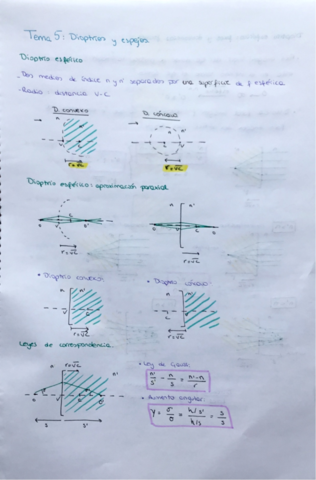 Tema 5: Dioptrios y espejos
Dioptrio esférico
Dos medios de índice n y n' separados por una superficie de f esférica
Radio: distancia V-C
D. convexo
D. cóncavo
r=VC
r=VC
Dioptrio esférico: aproximación paraxial
r=VC
r=VC
Dioptrio convexo:
Dioptrio cóncavo:
r=VC
r=VC
Leyes de correspondencia
r=VC
n
n'
s
s'
Ley de
n'/s' - n/s = n'-n/r
Aumento angular
γ = σ'/σ = h/s'/h/s = s/s'